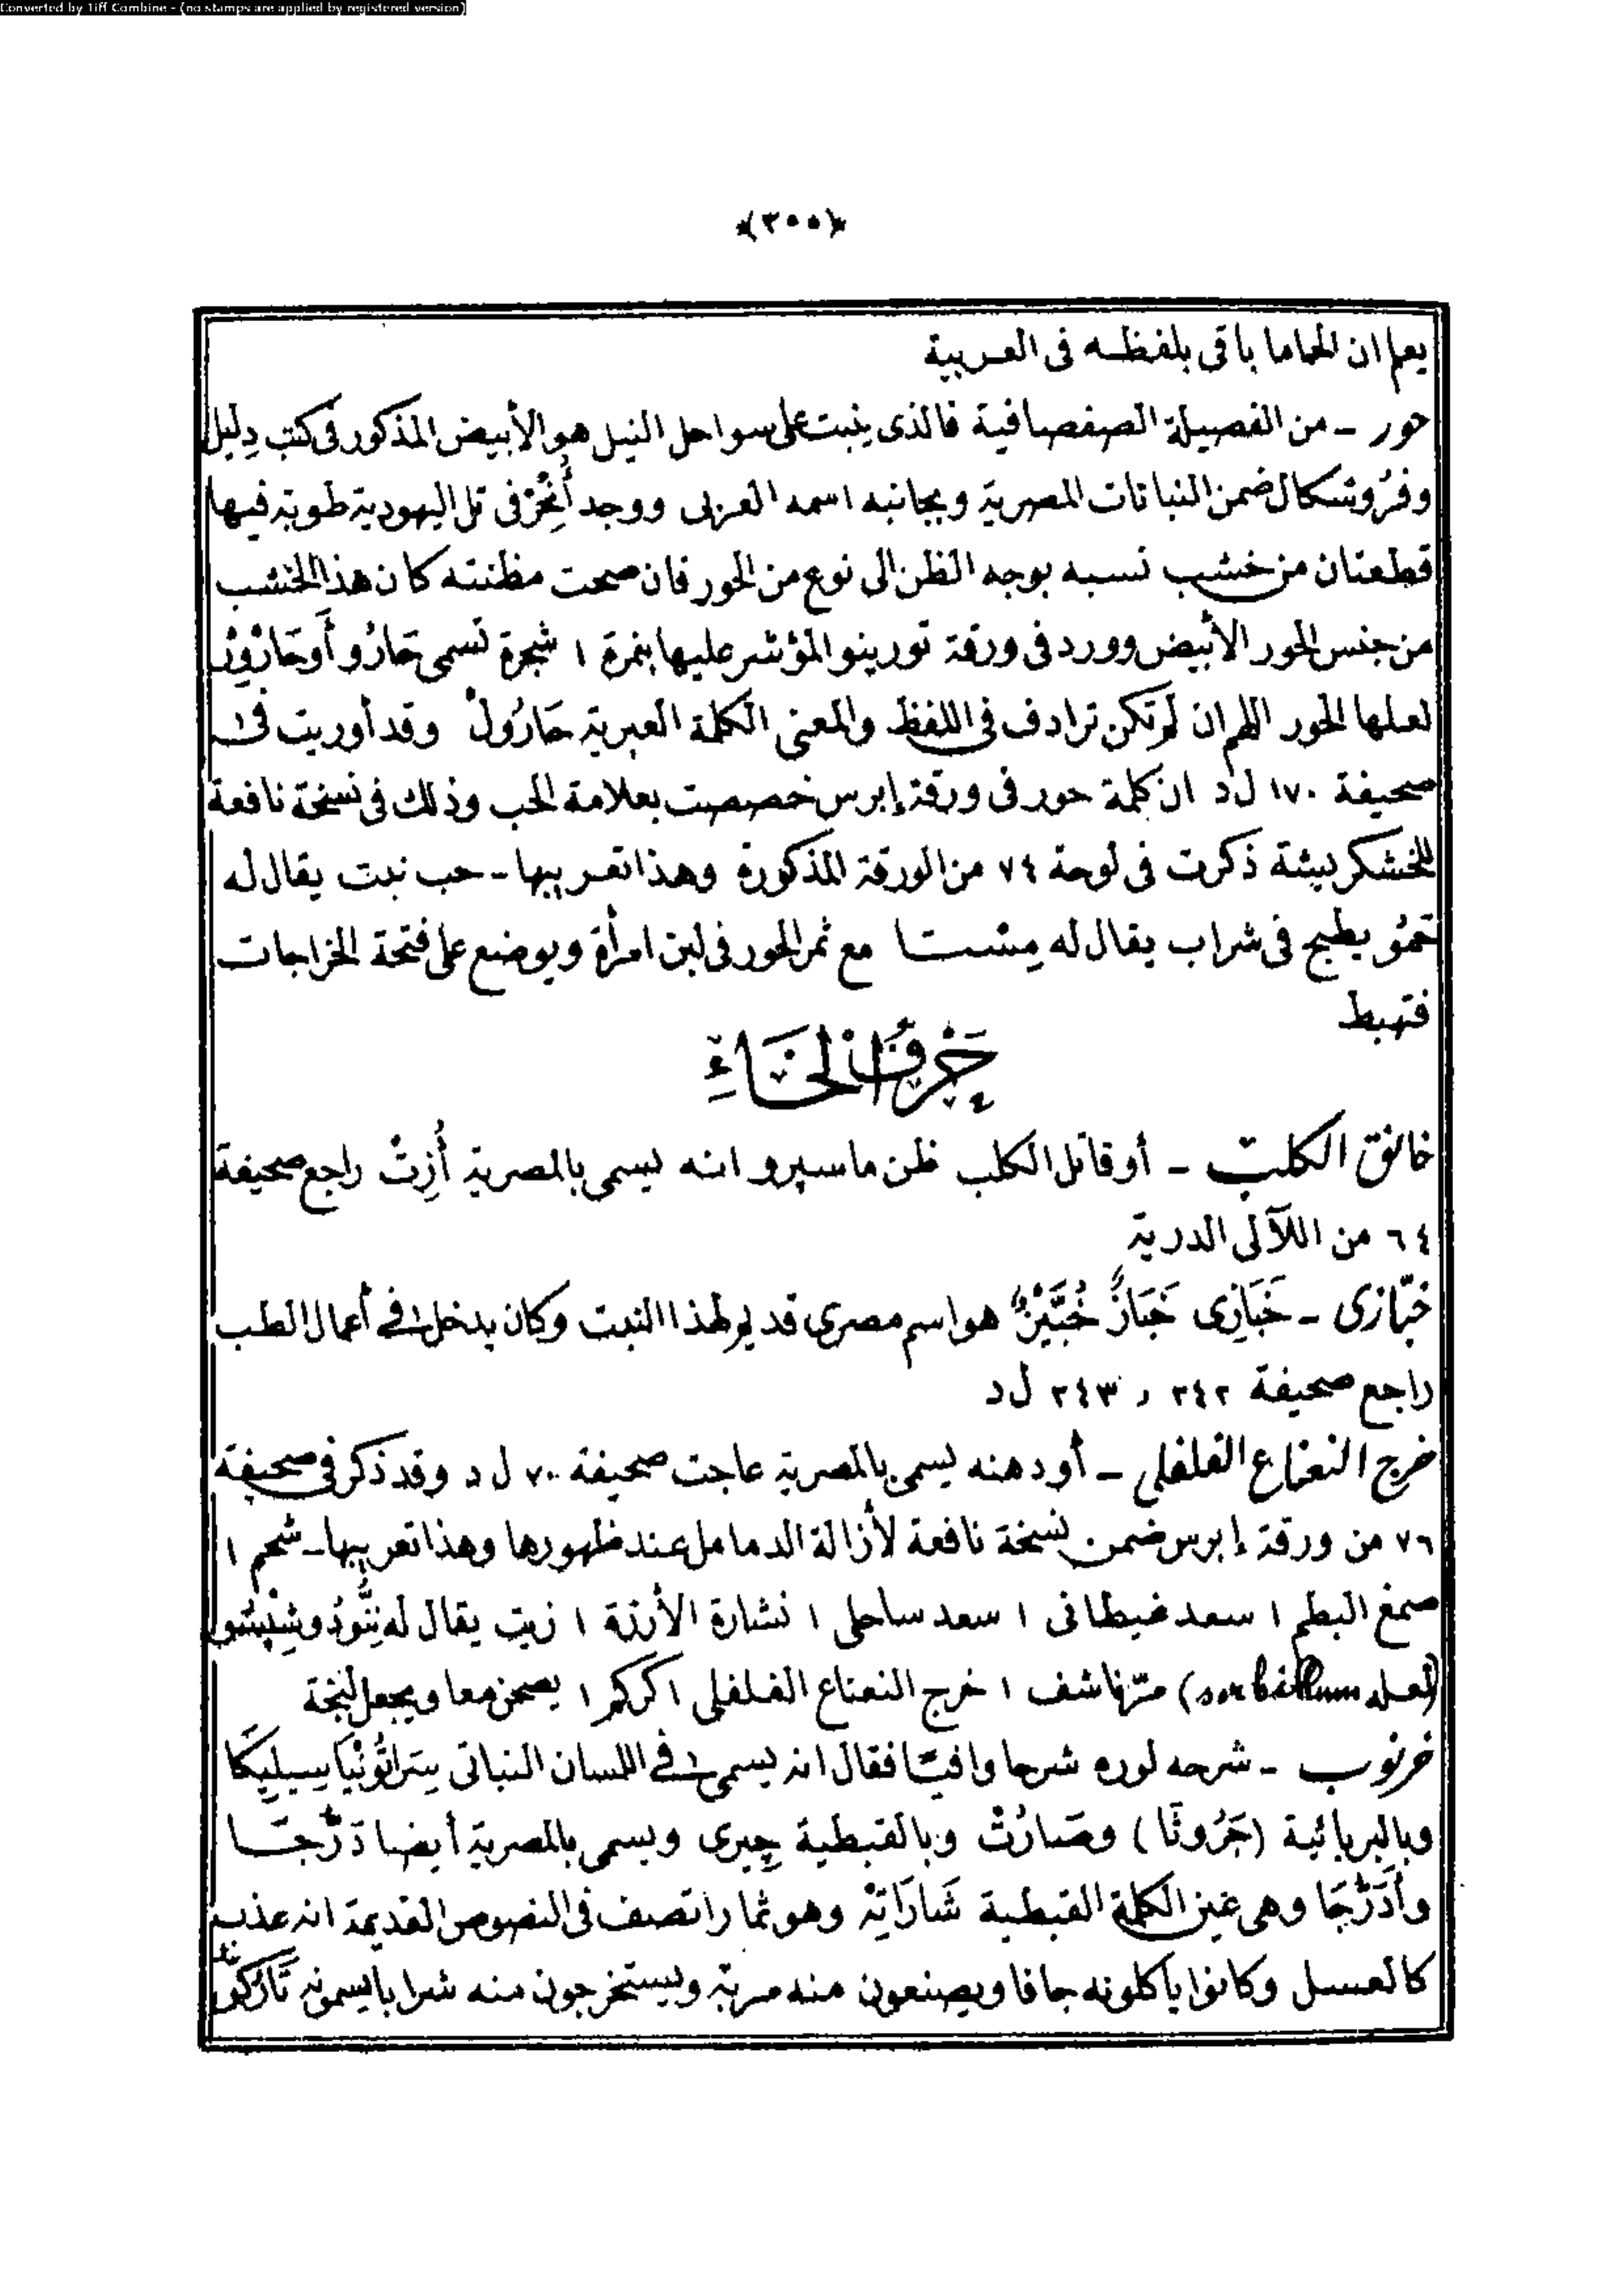 Converted by Tiff Combine - (no stamps are applied by registered version)
﴿٣٥٥﴾
يعلم ان الحماما باقى بلفظه فى العربية
حور - من الفصيلة الصفصافية فالذى ينبت على سواحل النيل هو الأبيض المذكور فى كتب دليل
وفروسكال ضمن النباتات المصرية وبجانبه اسمه العربى ووجد أُنْجَرْ فى تل اليهودية طوبة فيها
قطعتان من خشب نسبه بوجه الظن الى نوع من الحور فان صحت مظنته كان هذا الخشب
من جنس الحور الأبيض وورد فى ورقة تورينو المؤشر عليها بنمرة ١ شجرة تسمى حَارُو أَوحَارْوُرْ
لعلها الحور اللهم ان لم تكن ترادف فى اللفظ والمعنى الكلمة العبرية حَارُولْ وقد أوريت فى
صحيفة ١٧٠ ل د ان كلمة حور فى ورقة إبرس خصصت بعلامة الحب وذلك فى نسخة نافعة
للخشكريشة ذكرت فى لوحة ٧٤ من الورقة المذكورة وهذا تعريبها - حب نبت يقال له
حَمُو يطبخ فى شراب يقال له مِسْتا مع ثمر الحور فى لبن امرأة ويوضع على فتحة الخراجات
فتهبط
حَرفُ الخَاءِ
خانق الكلب - أو قاتل الكلب ظن ماسپرو انه يسمى بالمصرية أُزِتْ راجع صحيفة
٦٤ من اللآلى الدرية
خبّازى - خَبَازِى خَبَازٌ خُبَّيْزٌ هو اسم مصرى قديم لهذا النبت وكان يدخل فى أعمال الطب
راجع صحيفة ٢٤٢ و ٢٤٣ ل د
خرج النعناع الفلفلى - أو دهنه يسمى بالمصرية عاجت صحيفة ٧٠ ل د وقد ذكر فى صحيفة
٧٦ من ورقة إبرس ضمن نسخة نافعة لأزالة الدمامل عند ظهورها وهذا تعريبها - شحم ١
صمغ البطم ١ سعد غيطانى ١ سعد ساحلى ١ نشارة الأرزة ١ زيت يقال له
(لعله sorbillum) مرّ ناشف ١ خرج النعناع الفلفلى ١ كركم ١ يصحن معا ويجعل لبخة
خرنوب - شرحه لوره شرحا وافيًا فقال انه يسمى فى اللسان النباتى سِرَاتُونْيَا سِيلِيكَا
وبالبربائية (جَرُوتَا) وصَارُتْ وبالقبطية چِيرى ويسمى بالمصرية أيضا دَرْجَا
وأَدَرْجَا وهى عين الكلمة القبطية شَارَاتِهْ وهو ثمار اتصف فى النصوص القديمة انه عذب
كالعسل وكانوا يأكلونه جافا ويصنعون منه مربة ويستخرجون منه شرابا يسمونه